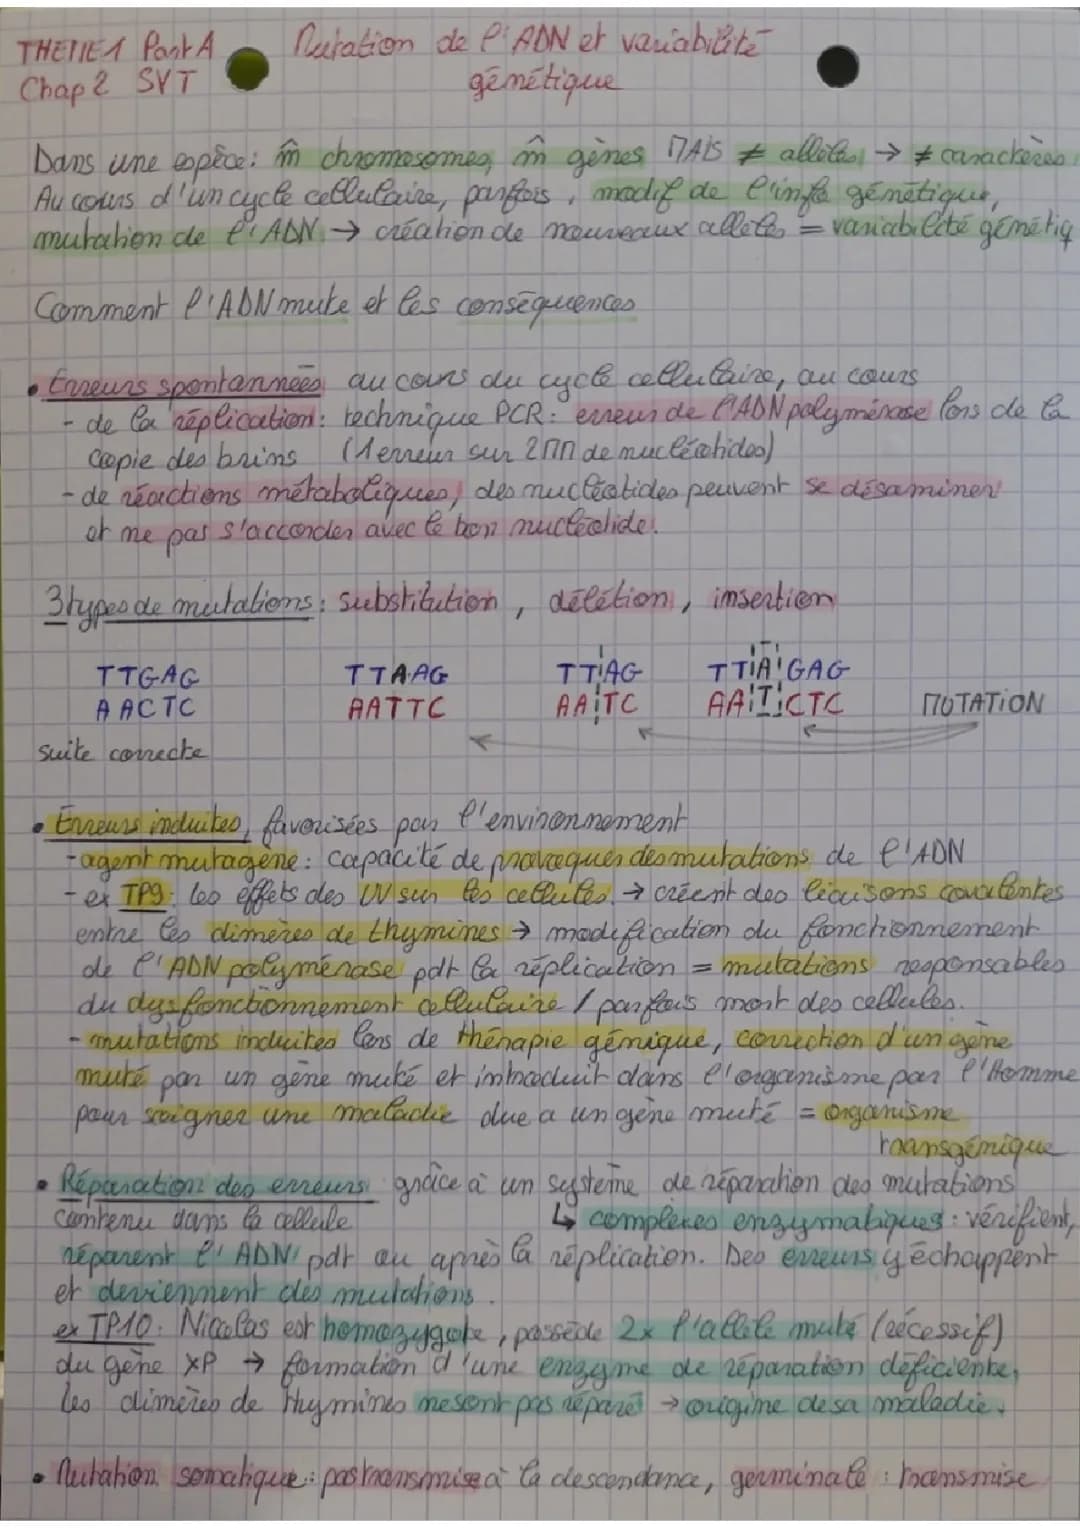 THEME 1 Part A Mutation de l'ADN et variabilité
Chap 2 SVT génétique
Dans une espèce : m̂ chromosomes, m̂ gènes MAIS ≠ allèles → ≠ caractères
Au cours d'un cycle cellulaire, parfois, modif de l'info génétique,
mutation de l'ADN → création de nouveaux allèles = variabilité génétiq
Comment l'ADN mute et les conséquences
• Erreurs spontannées au cours du cycle cellulaire, au cours
- de la réplication : technique PCR : erreur de l'ADN polymérase lors de la
copie des brins (1 erreur sur 2MM de nucléotides)
- de réactions métaboliques, des nucléotides peuvent se désaminer
et ne pas s'accorder avec le bon nucléotide.
3 types de mutations : substitution, délétion, insertion
TTGAG TTAAG TTAG TTAGAG
AACTC AATTC AATC AATCTC MUTATION
suite correcte
• Erreurs induites, favorisées par l'environnement
- agent mutagène : capacité de provoquer des mutations de l'ADN
- ex TP9 : les effets des UV sur les cellules → créent des liaisons covalentes
entre les dimères de thymines → modification du fonctionnement
de l'ADN polymérase pdt la réplication = mutations responsables
du dysfonctionnement cellulaire / parfois mort des cellules.
- mutations induites lors de thérapie génique, correction d'un gène
muté par un gène muté et introduit dans l'organisme par l'Homme
pour soigner une maladie due a un gène muté = organisme
transgénique
• Réparation des erreurs grâce à un système de réparation des mutations
contenu dans la cellule ↳ complexes enzymatiques : vérifient,
réparent l'ADN pdt ou après la réplication. Des erreurs y échappent
et deviennent des mutations.
ex TP10 : Nicolas est homozygote, possède 2x l'allèle muté (récessif)
du gène XP → formation d'une enzyme de réparation déficiente,
les dimères de thymines ne sont pas réparé → origine de sa maladie.
• Mutation somatique : pas transmise à la descendance, germinale : transmise